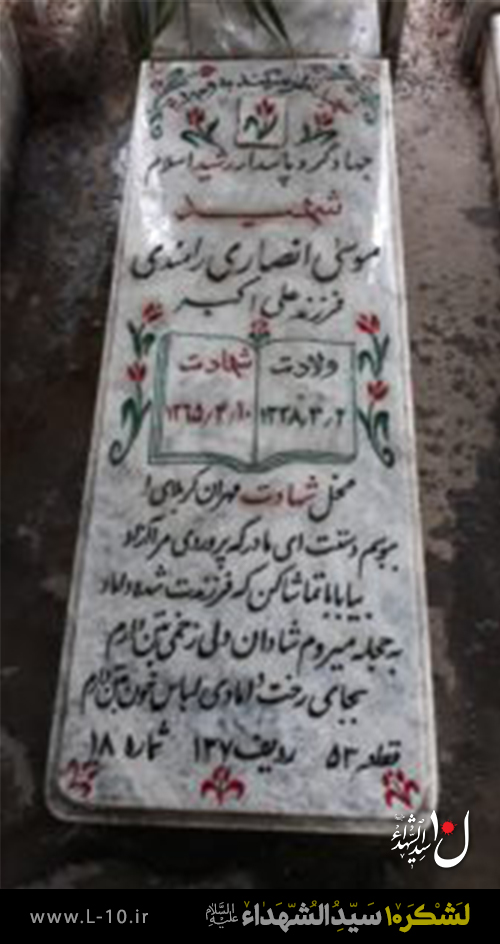 جهادگر و پاسدار رشید اسلام
شهید
موسی انصاری رامندی
فرزند علی اکبر
ولادت شهادت
۱۳۳۸٫۳٫۲ ۱۳۶۵٫۴٫۱۰
محل شهادت مهران کربلای ۱
ببوسم دستت ای مادر که پروردی مرا آزاد
بیا بابا تماشا کن که فرزندت شده داماد
به حجله میروم شادان ولی زخمی بتن دارم
بجای رخت دامادی لباس خون بتن دارم
قطعه ۵۳ ردیف ۱۳۷ شماره ۱۸
ل۱۰ سیدالشهداء
لَشکَرِ۱۰ سَیّدُالشّهَداء عَلَیهِ السَّلام
www.L-10.ir